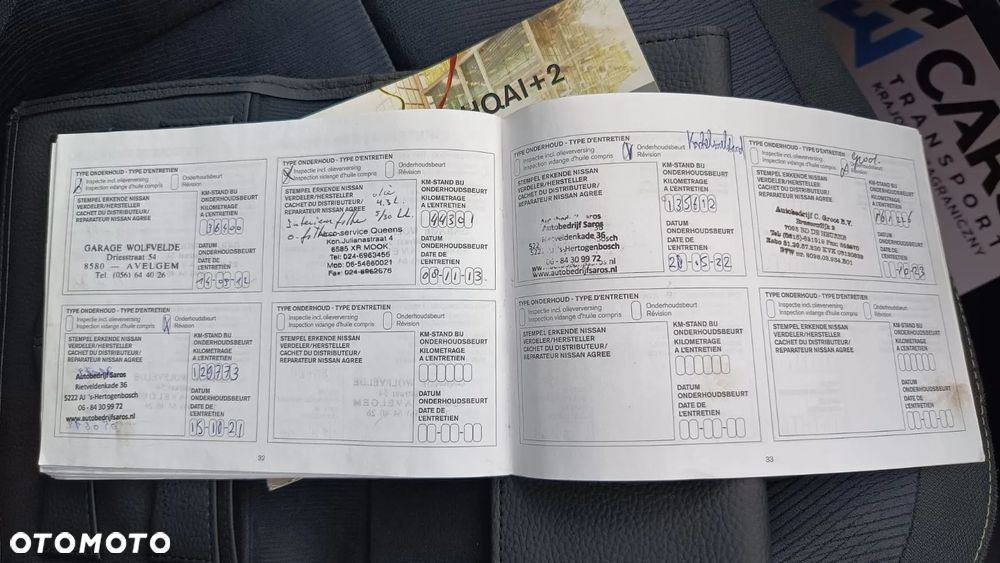 HQAI+2
CA
TRANSPORT
TYPE ONDERHOUD - TYPE D'ENTRETIEN
Inspectie incl. olieverversing
Inspection vidange d'huile compris
Onderhoudsbeurt
Révision
STEMPEL ERKENDE NISSAN
VERDELER/HERSTELLER
CACHET DU DISTRIBUTEUR/
REPARATEUR NISSAN AGREE
GARAGE WOLFVELDE
Driesstraat 54
8580 — AVELGEM
Tel. (056) 64 40 26
KM-STAND BIJ
ONDERHOUDSBEURT
KILOMETRAGE
A L'ENTRETIEN
DATUM
ONDERHOUDSBEURT
DATE DE
L'ENTRETIEN
TYPE ONDERHOUD - TYPE D'ENTRETIEN
Inspectie incl. olieverversing
Inspection vidange d'huile compris
Onderhoudsbeurt
Révision
STEMPEL ERKENDE NISSAN
VERDELER/HERSTELLER
CACHET DU DISTRIBUTEUR/
REPARATEUR NISSAN AGREE
olie
4.3 L.
5/30
-service Queens
Kon.Julianastraat 4
6585 XR MOOK
Tel: 024-6963455
Mob: 06-54660021
Fax: 024-6962676
KM-STAND BIJ
ONDERHOUDSBEURT
KILOMETRAGE
A L'ENTRETIEN
44301
DATUM
ONDERHOUDSBEURT
DATE DE
L'ENTRETIEN
08-11-13
TYPE ONDERHOUD - TYPE D'ENTRETIEN
Inspectie incl. olieverversing
Inspection vidange d'huile compris
Onderhoudsbeurt
Révision
STEMPEL ERKENDE NISSAN
VERDELER/HERSTELLER
CACHET DU DISTRIBUTEUR/
REPARATEUR NISSAN AGREE
Autobedrijf Saros
Rietveldenkade 36
5222 AJ 's-Hertogenbosch
06 - 84 30 99 72
www.autobedrijfsaros.nl
KM-STAND BIJ
ONDERHOUDSBEURT
KILOMETRAGE
A L'ENTRETIEN
129773
DATUM
ONDERHOUDSBEURT
DATE DE
L'ENTRETIEN
15-10-21
TYPE ONDERHOUD - TYPE D'ENTRETIEN
Inspectie incl. olieverversing
Inspection vidange d'huile compris
Onderhoudsbeurt
Révision
STEMPEL ERKENDE NISSAN
VERDELER/HERSTELLER
CACHET DU DISTRIBUTEUR/
REPARATEUR NISSAN AGREE
KM-STAND BIJ
ONDERHOUDSBEURT
KILOMETRAGE
A L'ENTRETIEN
DATUM
ONDERHOUDSBEURT
DATE DE
L'ENTRETIEN
32
TYPE ONDERHOUD - TYPE D'ENTRETIEN
Inspectie incl. olieverversing
Inspection vidange d'huile compris
Onderhoudsbeurt
Révision
STEMPEL ERKENDE NISSAN
VERDELER/HERSTELLER
CACHET DU DISTRIBUTEUR/
REPARATEUR NISSAN AGREE
Saros
Rietveldenkade 36
5222 AJ 's-Hertogenbosch
06 - 84 30 99 72
www.autobedrijfsaros.nl
KM-STAND BIJ
ONDERHOUDSBEURT
KILOMETRAGE
A L'ENTRETIEN
135612
DATUM
ONDERHOUDSBEURT
DATE DE
L'ENTRETIEN
20-05-22
TYPE ONDERHOUD - TYPE D'ENTRETIEN
Inspectie incl. olieverversing
Inspection vidange d'huile compris
Onderhoudsbeurt
Révision
STEMPEL ERKENDE NISSAN
VERDELER/HERSTELLER
CACHET DU DISTRIBUTEUR/
REPARATEUR NISSAN AGREE
Autobedrijf C. Groos B.V.
KM-STAND BIJ
ONDERHOUDSBEURT
KILOMETRAGE
A L'ENTRETIEN
DATUM
ONDERHOUDSBEURT
DATE DE
L'ENTRETIEN
TYPE ONDERHOUD - TYPE D'ENTRETIEN
Inspectie incl. olieverversing
Inspection vidange d'huile compris
Onderhoudsbeurt
Révision
STEMPEL ERKENDE NISSAN
VERDELER/HERSTELLER
CACHET DU DISTRIBUTEUR/
REPARATEUR NISSAN AGREE
KM-STAND BIJ
ONDERHOUDSBEURT
KILOMETRAGE
A L'ENTRETIEN
DATUM
ONDERHOUDSBEURT
DATE DE
L'ENTRETIEN
TYPE ONDERHOUD - TYPE D'ENTRETIEN
Inspectie incl. olieverversing
Inspection vidange d'huile compris
Onderhoudsbeurt
Révision
STEMPEL ERKENDE NISSAN
VERDELER/HERSTELLER
CACHET DU DISTRIBUTEUR/
REPARATEUR NISSAN AGREE
KM-STAND BIJ
ONDERHOUDSBEURT
KILOMETRAGE
A L'ENTRETIEN
DATUM
ONDERHOUDSBEURT
DATE DE
L'ENTRETIEN
33
OTOMOTO